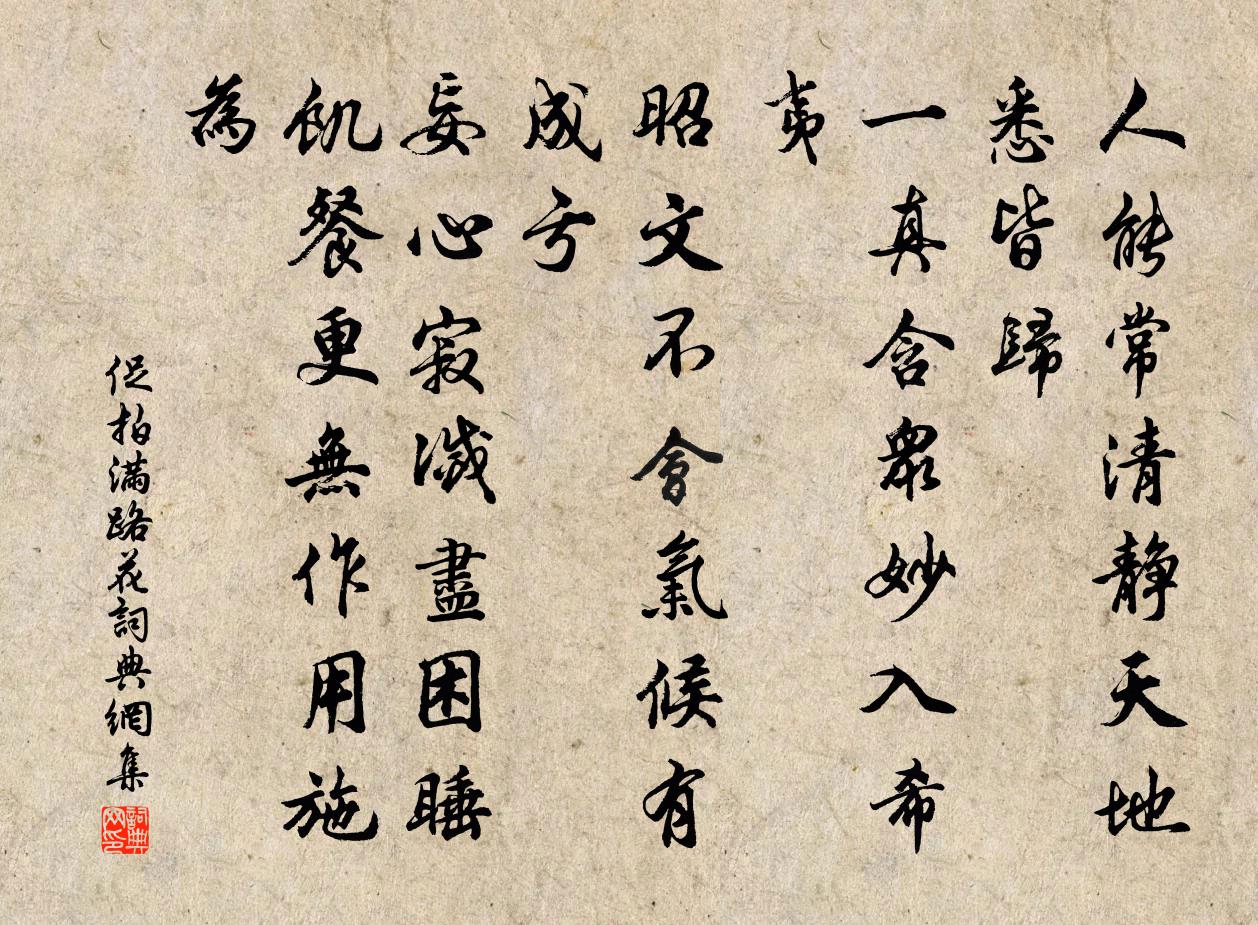 人能常清靜天地
悉皆歸
一真含眾妙入希
夷
昭文不會氣候有
成亏
妄心寂滅盡困睡
飢餐更無作用施
為
促拍滿路花詞典網集
詞典
网印